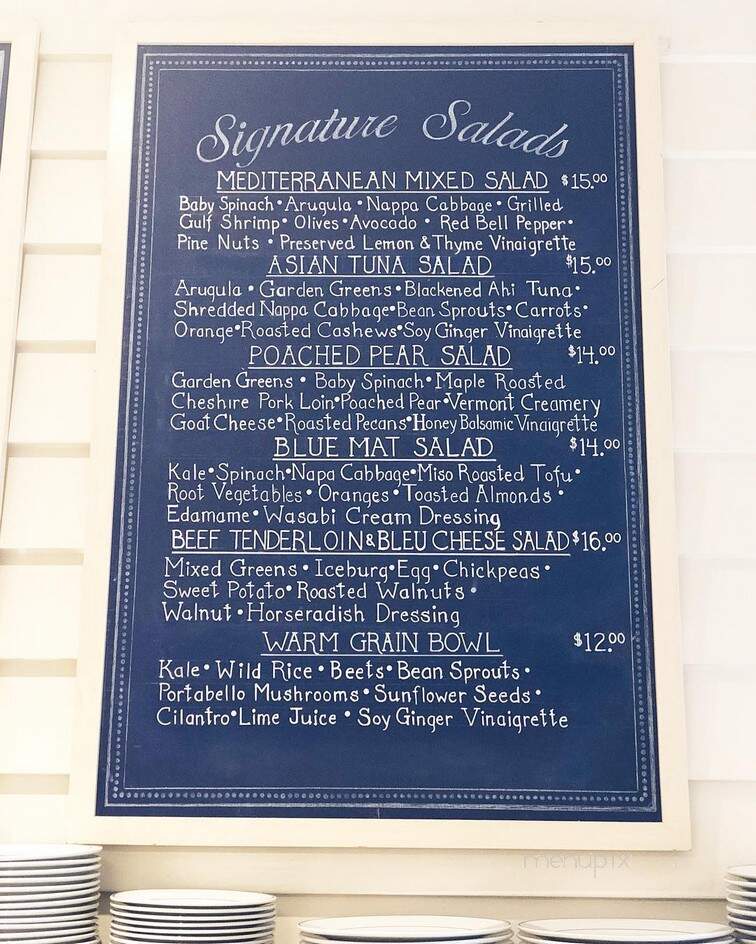 Signature Salads
MEDITERRANEAN MIXED SALAD $15.00
Baby Spinach • Arugula • Nappa Cabbage • Grilled
Gulf Shrimp • Olives • Avocado • Red Bell Pepper •
Pine Nuts • Preserved Lemon & Thyme Vinaigrette
ASIAN TUNA SALAD $15.00
Arugula • Garden Greens • Blackened Ahi Tuna •
Shredded Nappa Cabbage • Bean Sprouts • Carrots •
Orange • Roasted Cashews • Soy Ginger Vinaigrette
POACHED PEAR SALAD $14.00
Garden Greens • Baby Spinach • Maple Roasted
Cheshire Pork Loin • Poached Pear • Vermont Creamery
Goat Cheese • Roasted Pecans • Honey Balsamic Vinaigrette
BLUE MAT SALAD $14.00
Kale • Spinach • Napa Cabbage • Miso Roasted Tofu •
Root Vegetables • Oranges • Toasted Almonds •
Edamame • Wasabi Cream Dressing
BEEF TENDERLOIN & BLEU CHEESE SALAD $16.00
Mixed Greens • Iceburg • Egg • Chickpeas •
Sweet Potato • Roasted Walnuts •
Walnut • Horseradish Dressing
WARM GRAIN BOWL $12.00
Kale • Wild Rice • Beets • Bean Sprouts •
Portabello Mushrooms • Sunflower Seeds •
Cilantro • Lime Juice • Soy Ginger Vinaigrette
menupix